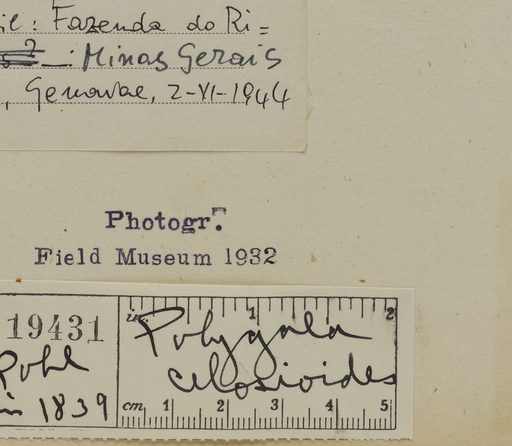 il: Fazenda do Ri=
? : Minas Gerais
, Genavae, 2-VI-1944
Photogr.
Field Museum 1932
19431
Pohl
in 1839
in. 1 2
Polygala
celosioides
cm 1 2 3 4 5